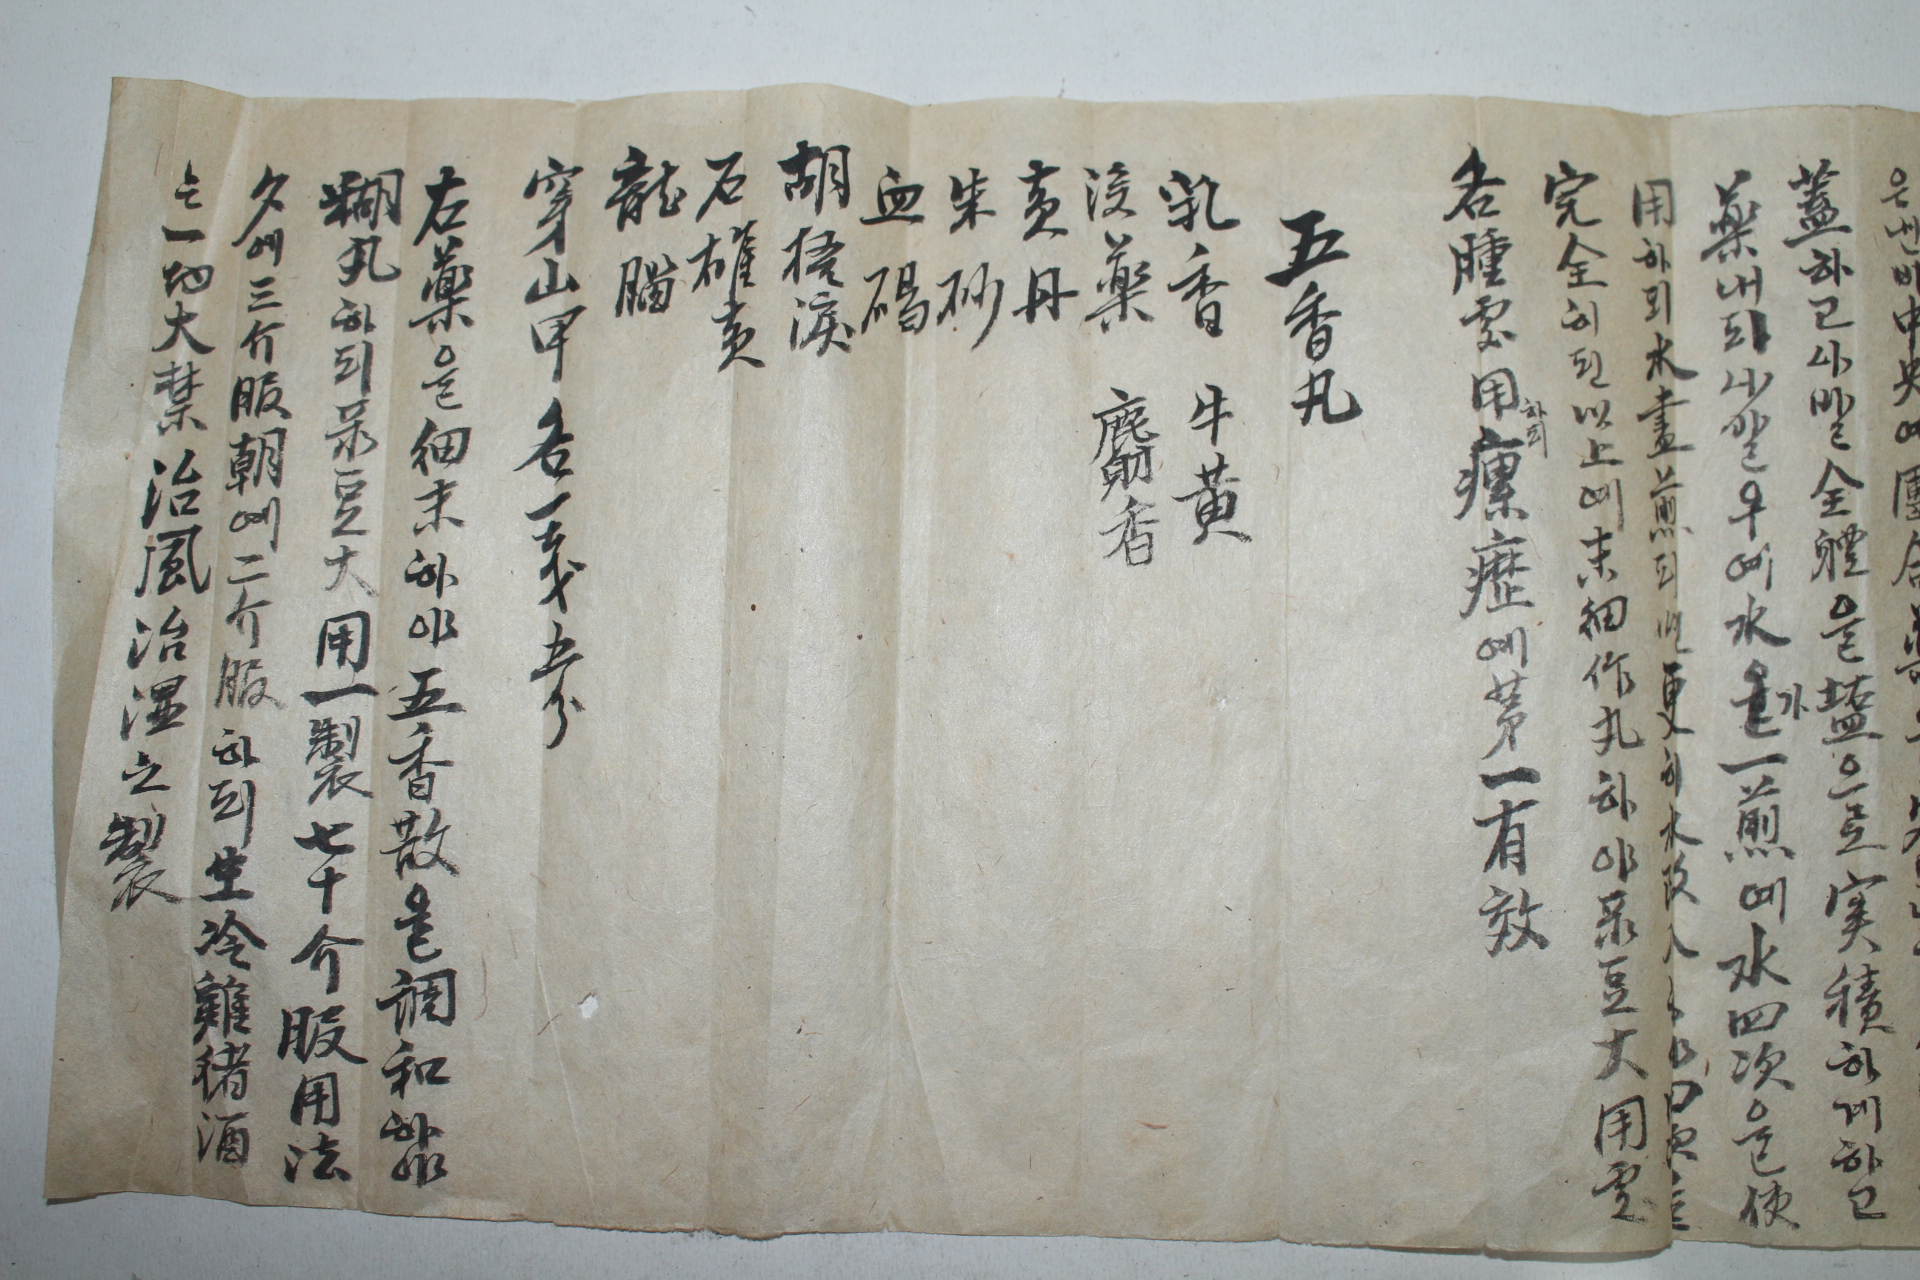 은 中央에 團合
蓋하고 사발 全體을 塩으로 実積하게 하고
藥내되 사발 우에 水을 가 一煎에 水四次을 使
用하되 水盡煎되 更히 水
完全히 된 以上에 末細作丸하야 菉豆大 用処
各腫処用하되 瘰癧에 苐一有效
五香丸
乳香 牛黃
沒藥 麝香
黃丹
朱砂
血碣
胡桐淚
石雄黃
龍腦
穿山甲 各一戔五分
右藥을 細末하야 五香散을 調和하야
糊丸하되 菉豆大 用一製七十介 服用法
夕에 三介服 朝에 二介服하되 生冷雞猪酒
는 一切大禁 治風治湿之製